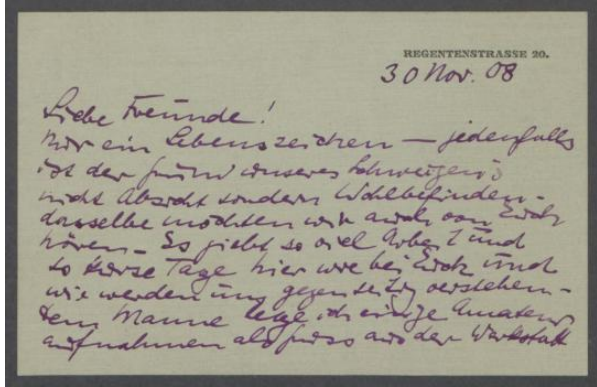 REGENTENSTRASSE 20.
30 Nov. 08
Liebe Freunde!
Nur ein Lebenszeichen — jedenfalls
ist der Grund unseres Schweigens
nicht Absicht sondern Wohlbefinden -
dasselbe möchten wir auch von Euch
hören - Es giebt so viel Arbeit und
so kurze Tage hier wie bei Euch und
wir werden uns gegenseitig verstehen -
Dem Manne lege ich einige Amateur
aufnahmen als Gruss aus der Werkstatt